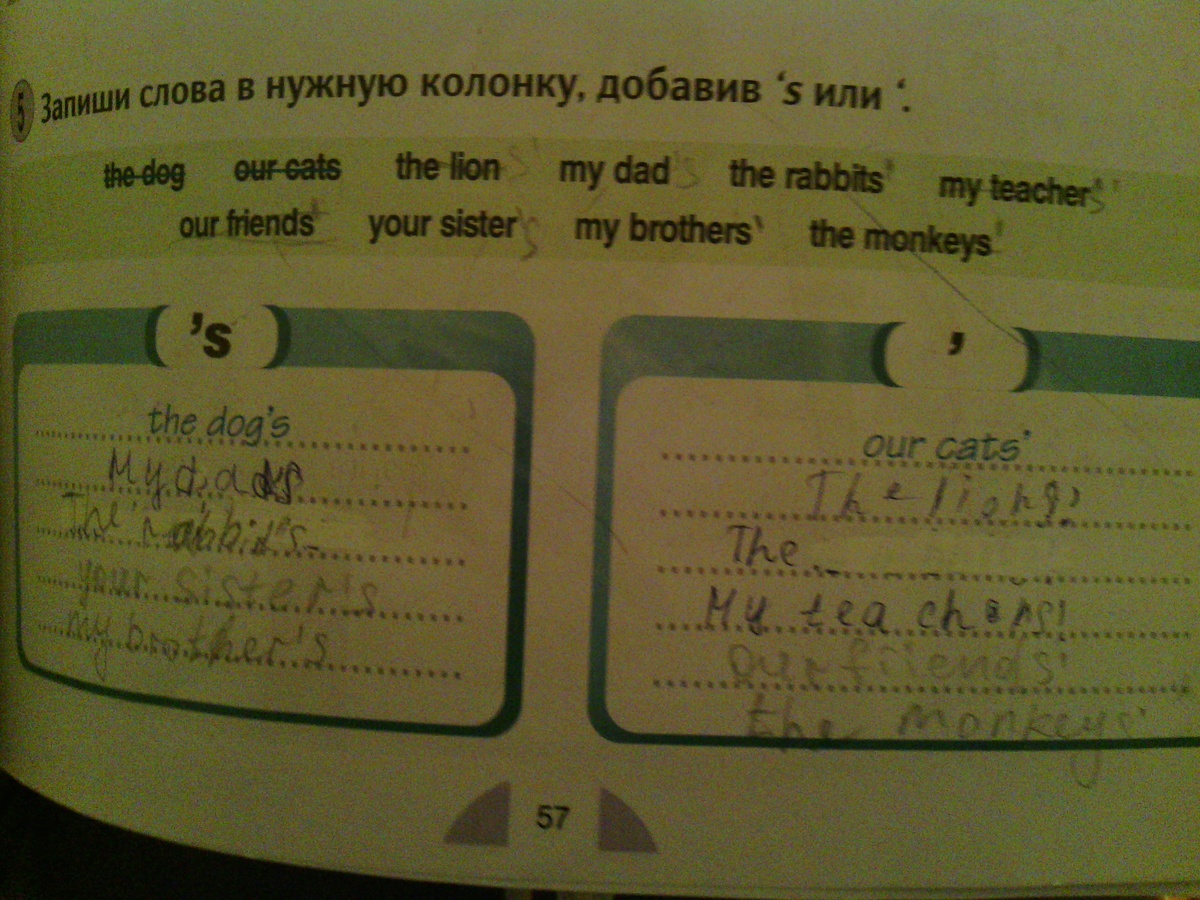 5 Запиши слова в нужную колонку, добавив ‘s или ‘.
the dog our cats the lions' my dad's the rabbits' my teachers'
our friends' your sister's my brothers' the monkeys'
's
the dog's
My dads
The rabbit's
your sister's
my brother's
'
our cats'
The lions'
The
My teachers'
our friends'
the monkeys'
57